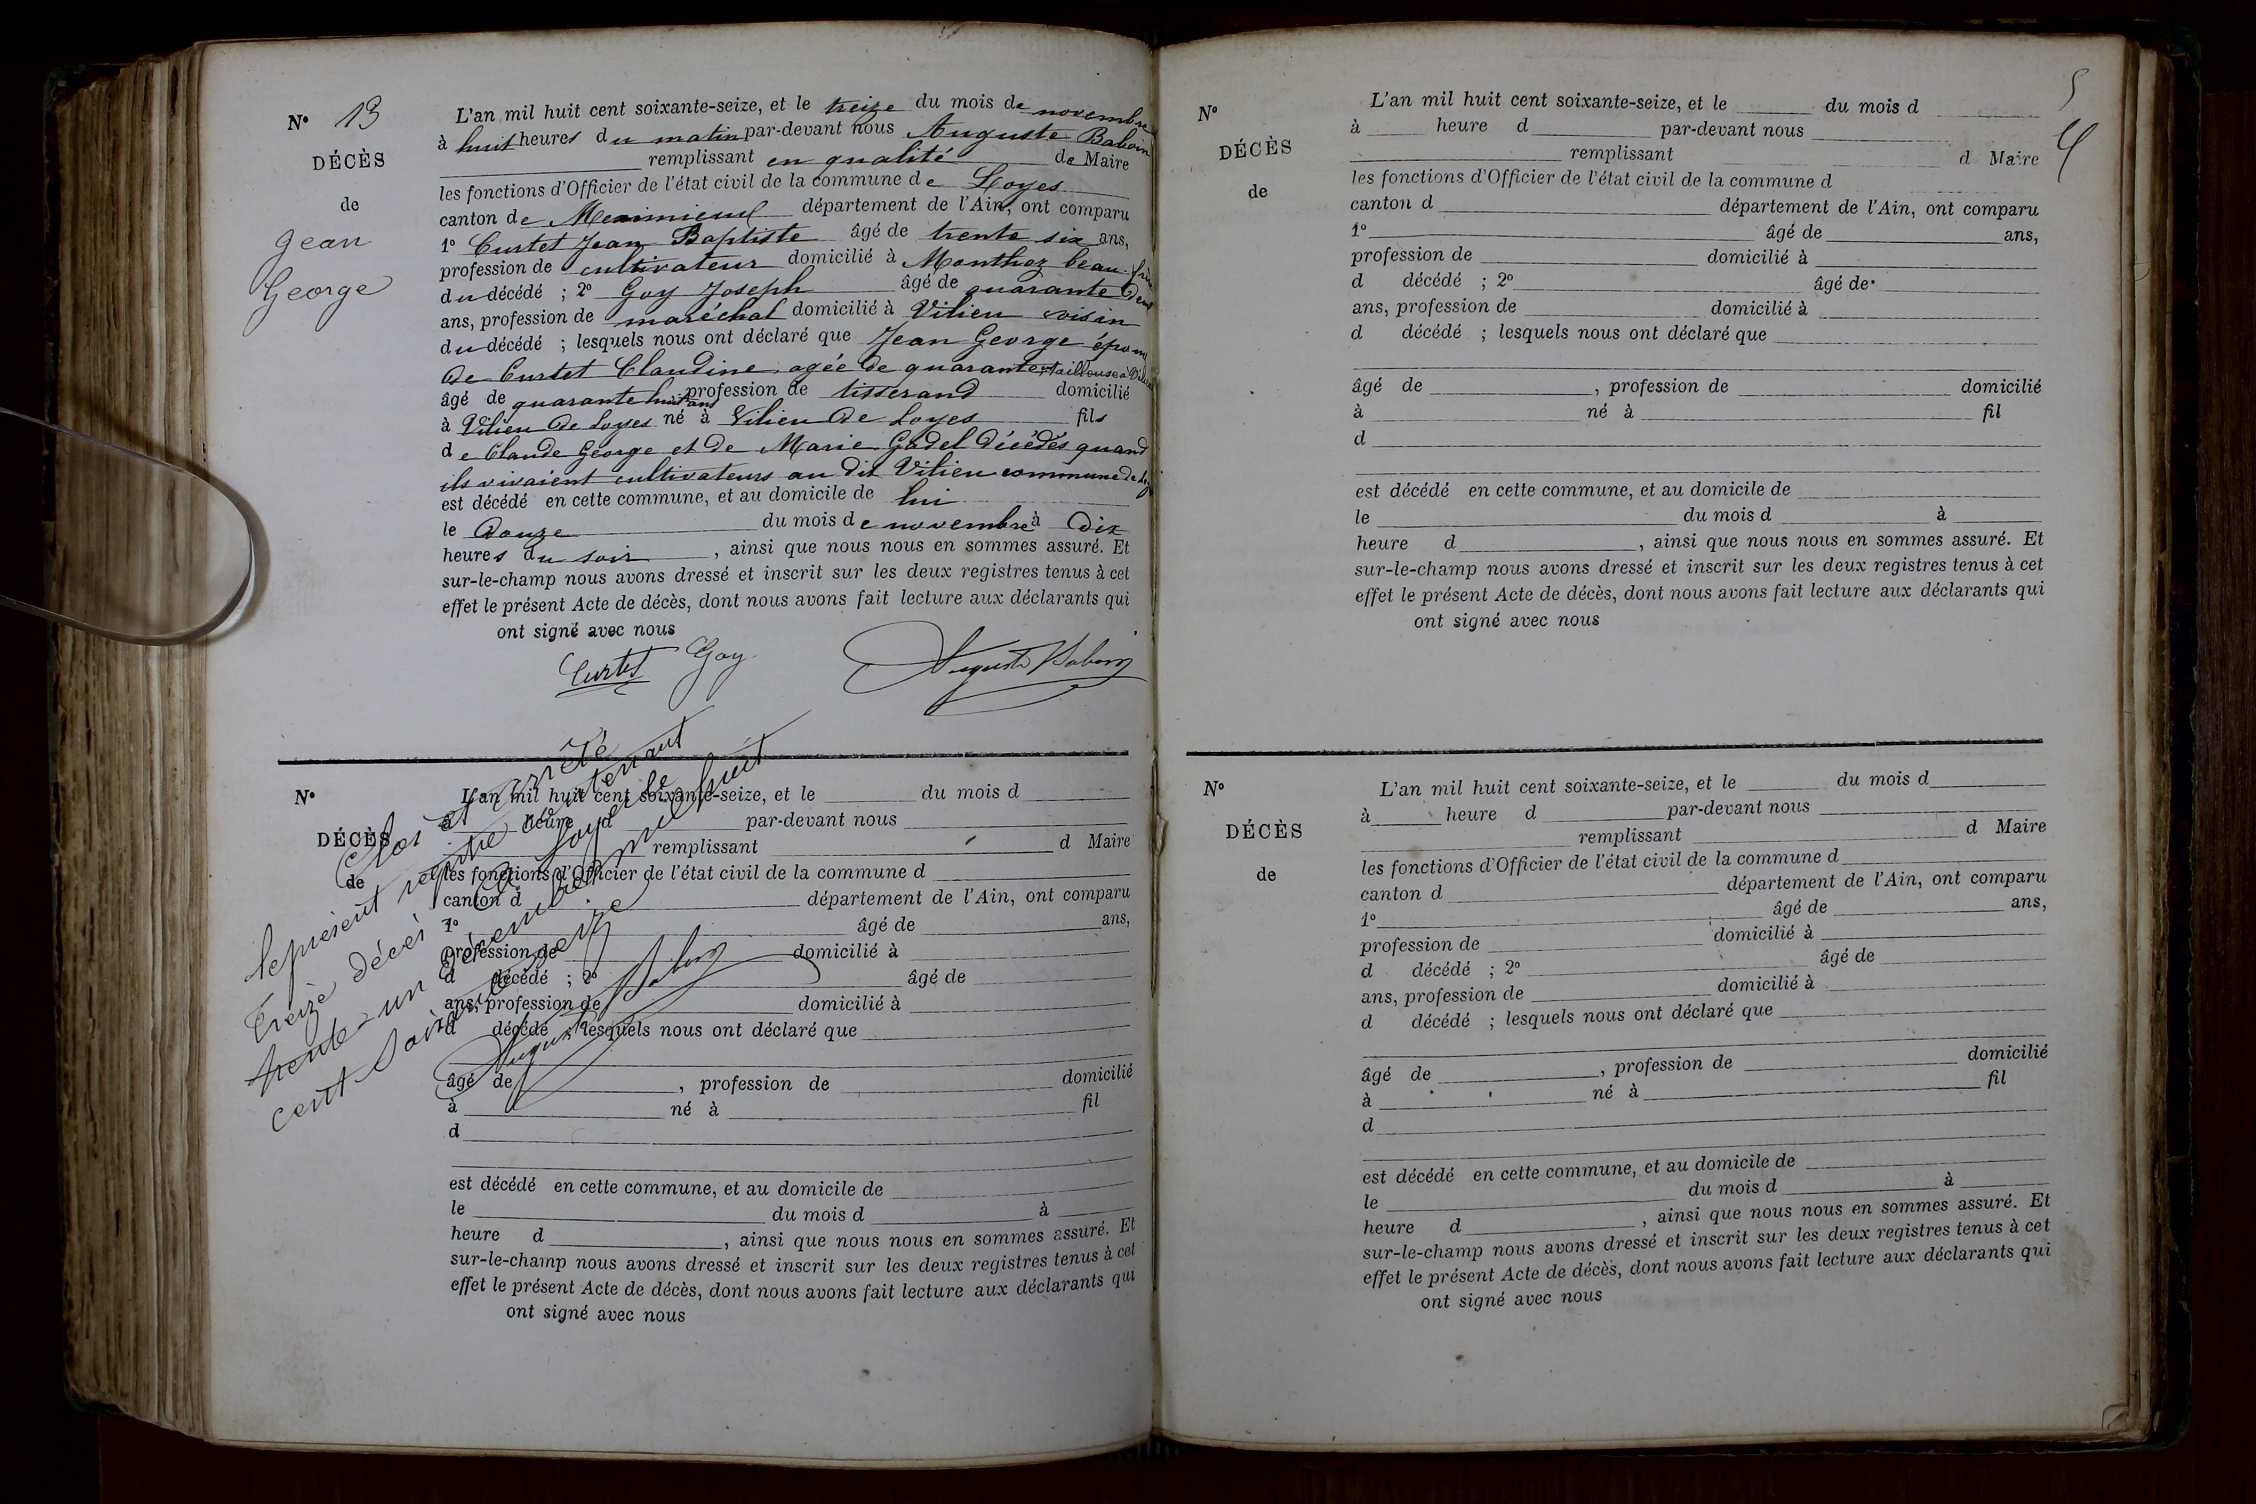 N° 13
DÉCÈS
de
Jean
George
L'an mil huit cent soixante-seize, et le treize du mois de novembre
à huit heures du matin par-devant nous Auguste Baboin
remplissant en qualité de Maire
les fonctions d'Officier de l'état civil de la commune de Loyes
canton de Meximieux département de l'Ain, ont comparu
1° Curtet Jean Baptiste âgé de trente six ans,
profession de cultivateur domicilié à Monthoz beau-frère
du décédé ; 2° Goy Joseph âgé de quarante deux
ans, profession de maréchal domicilié à Vilieu voisin
du décédé ; lesquels nous ont déclaré que Jean George époux
de Curtet Claudine agée de quarante tailleuse à Vilieu
âgé de quarante huit ans profession de tisserand domicilié
à Vilieu de Loyes né à Vilieu de Loyes fils
de Claude George et de Marie Godel décédés quand
ils vivaient cultivateurs au dit Vilieu commune de
est décédé en cette commune, et au domicile de lui
le douze du mois de novembre à dix
heures du soir , ainsi que nous nous en sommes assuré. Et
sur-le-champ nous avons dressé et inscrit sur les deux registres tenus à cet
effet le présent Acte de décès, dont nous avons fait lecture aux déclarants qui
ont signé avec nous
Curtet Goy Auguste Baboin
N°
DÉCÈS
de
L'an mil huit cent soixante-seize, et le du mois d
à heure d par-devant nous
remplissant d Maire
les fonctions d'Officier de l'état civil de la commune d
canton d département de l'Ain, ont comparu
1° âgé de ans,
profession de domicilié à
d décédé ; 2° âgé de
ans, profession de domicilié à
d décédé ; lesquels nous ont déclaré que
âgé de , profession de domicilié
à né à fil
d
est décédé en cette commune, et au domicile de
le du mois d à
heure d , ainsi que nous nous en sommes assuré. Et
sur-le-champ nous avons dressé et inscrit sur les deux registres tenus à cet
effet le présent Acte de décès, dont nous avons fait lecture aux déclarants qui
ont signé avec nous
Clos et arrêté
le présent registre contenant
treize décès à Loyes le
trente-un décembre mil huit
cent soixante seize
Auguste Baboin
5
N°
DÉCÈS
de
L'an mil huit cent soixante-seize, et le du mois d
à heure d par-devant nous
remplissant d Maire
les fonctions d'Officier de l'état civil de la commune d
canton d département de l'Ain, ont comparu
1° âgé de ans,
profession de domicilié à
d décédé ; 2° âgé de
ans, profession de domicilié à
d décédé ; lesquels nous ont déclaré que
âgé de , profession de domicilié
à né à fil
d
est décédé en cette commune, et au domicile de
le du mois d à
heure d , ainsi que nous nous en sommes assuré. Et
sur-le-champ nous avons dressé et inscrit sur les deux registres tenus à cet
effet le présent Acte de décès, dont nous avons fait lecture aux déclarants qui
ont signé avec nous
N°
DÉCÈS
de
L'an mil huit cent soixante-seize, et le du mois d
à heure d par-devant nous
remplissant d Maire
les fonctions d'Officier de l'état civil de la commune d
canton d département de l'Ain, ont comparu
1° âgé de ans,
profession de domicilié à
d décédé ; 2° âgé de
ans, profession de domicilié à
d décédé ; lesquels nous ont déclaré que
âgé de , profession de domicilié
à né à fil
d
est décédé en cette commune, et au domicile de
le du mois d à
heure d , ainsi que nous nous en sommes assuré. Et
sur-le-champ nous avons dressé et inscrit sur les deux registres tenus à cet
effet le présent Acte de décès, dont nous avons fait lecture aux déclarants qui
ont signé avec nous